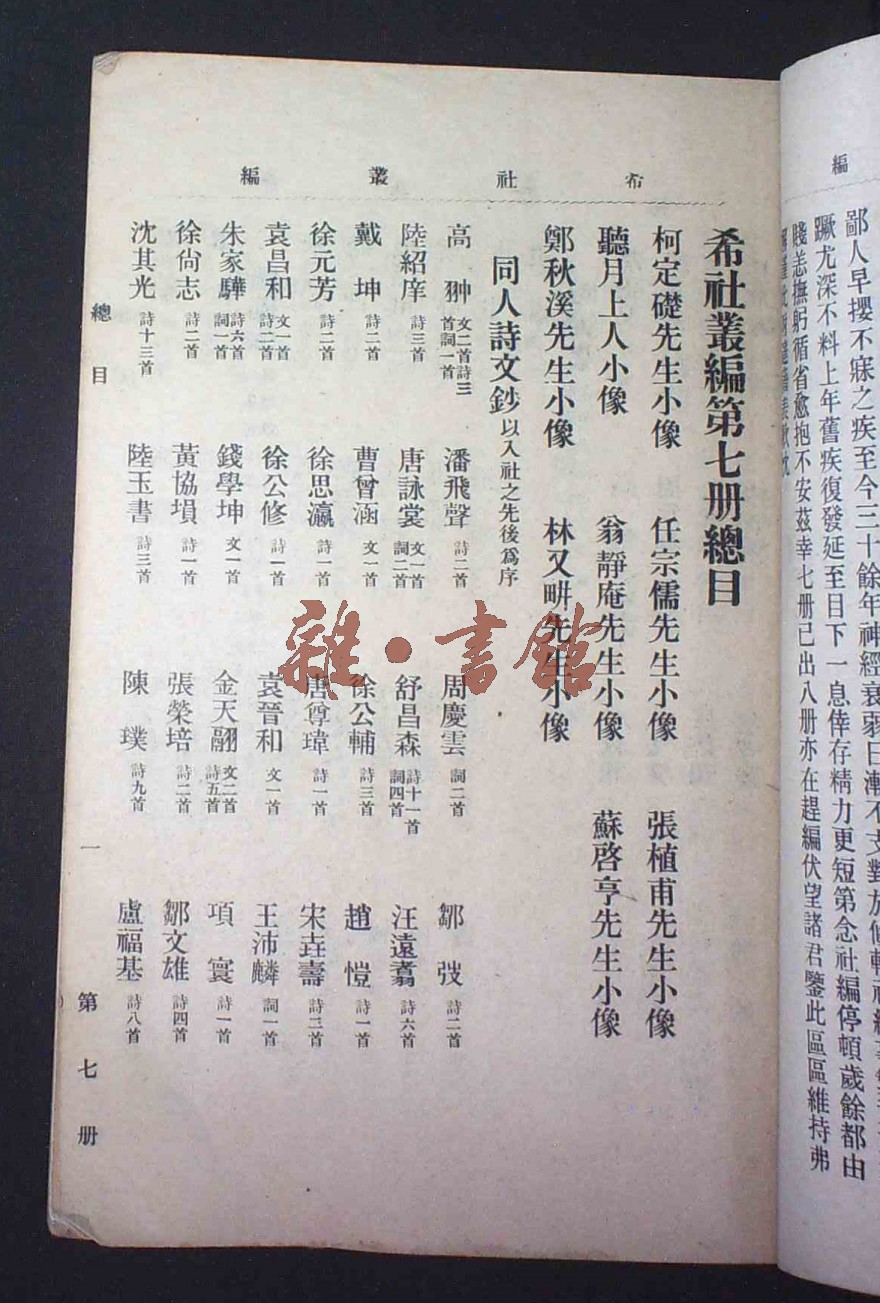 編
鄙人早攖不寐之疾至今三十餘年神經衰弱日漸不支對於
蹶尤深不料上年舊疾復發延至目下一息倖存精力更短第念社編停頓歲餘都由
賤恙撫躬循省愈抱不安茲幸七册已出八册亦在趕編伏望諸君鑒此區區維持弗
希社叢編
希社叢編第七册總目
柯定礎先生小像 任宗儒先生小像 張植甫先生小像
聽月上人小像 翁靜庵先生小像 蘇啓亨先生小像
鄭秋溪先生小像 林又畊先生小像
同人詩文鈔 以入社之先後爲序
高翀 文二首詩三首詞一首 潘飛聲 詩二首 周慶雲 詞二首 鄒弢 詩二首
陸紹庠 詩三首 唐詠裳 文一首詞二首 舒昌森 詩十一首詞四首 汪遠翥 詩六首
戴坤 詩二首 曹曾涵 文一首 徐公輔 詩三首 趙愷 詩一首
徐元芳 詩二首 徐思瀛 詩一首 唐尊瑋 詩一首 宋垚壽 詩三首
袁昌和 文一首詩二首 徐公修 詩一首 袁晉和 文一首 王沛麟 詞一首
朱家驊 詩六首詞一首 錢學坤 文一首 金天翮 文二首詩五首 項寰 詩一首
徐尙志 詩二首 黃協塤 詩一首 張榮培 詩二首 鄒文雄 詩四首
沈其光 詩十三首 陸玉書 詩三首 陳璞 詩九首 盧福基 詩八首
總目 一 第七册
雜·書館